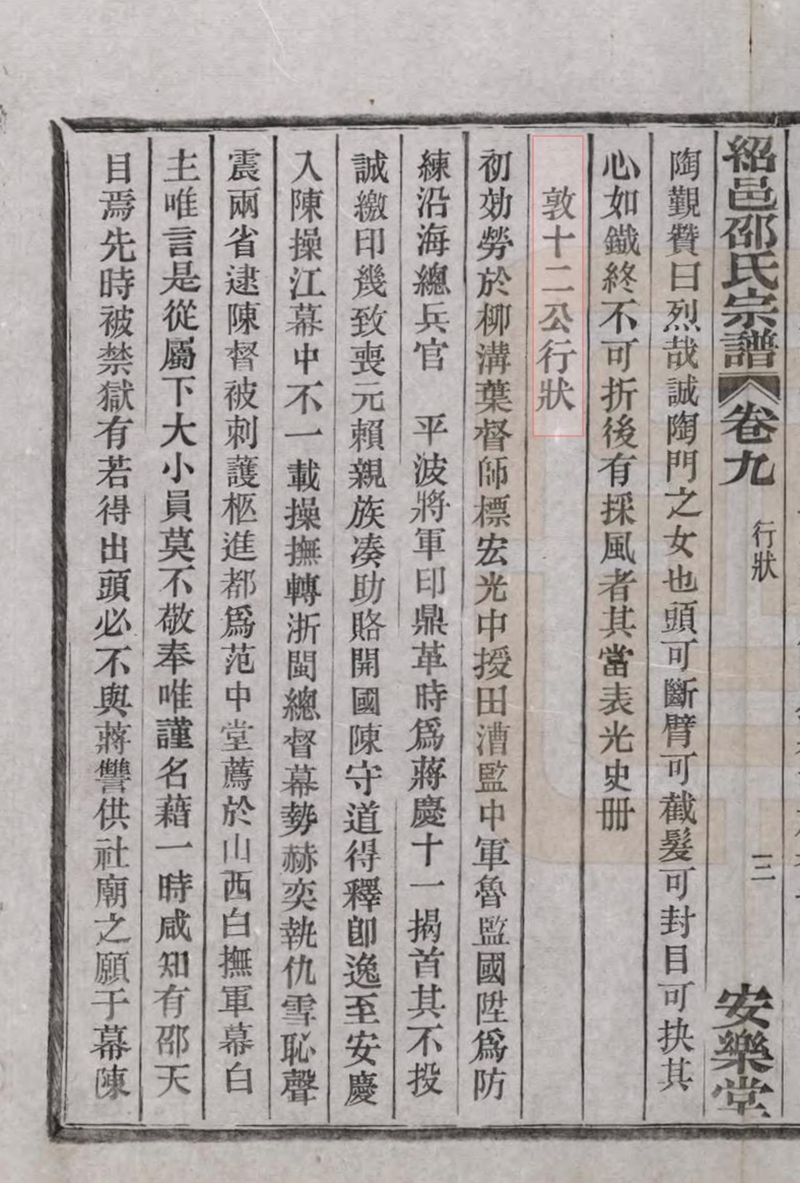 紹邑邵氏宗譜 卷九 行狀 三 安樂堂
陶覲贊曰烈哉誠陶門之女也頭可斷臂可截髮可封目可抉其
心如鐵終不可折後有採風者其當表光史冊
敦十二公行狀
初効勞於柳溝葉督師標宏光中授田漕監中軍魯監國陞爲防
練沿海總兵官 平波將軍印鼎革時爲蔣慶十一揭首其不投
誠繳印幾致喪元賴親族湊助賂開國陳守道得釋卽逸至安慶
入陳操江幕中不一載操撫轉浙閩總督幕勢赫奕執仇雪恥聲
震兩省逮陳督被刺護柩進都爲范中堂薦於山西白撫軍幕白
主唯言是從屬下大小員莫不敬奉唯謹名藉一時咸知有邵天
目焉先時被禁獄有若得出頭必不與蔣讐供社廟之願于幕陳